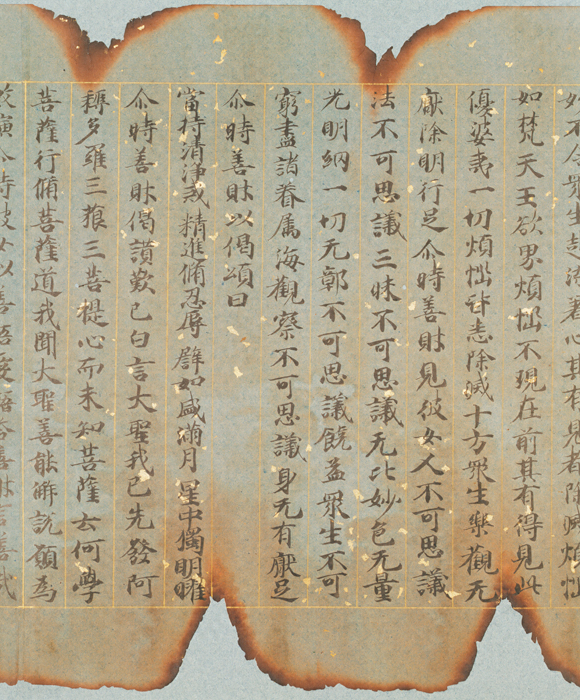 令眾生起染著心其有見者除滅煩惱
如梵天王欲界煩惱不現在前其有得見此
優婆夷一切煩惱皆悉除滅十方眾生樂觀无
厭除明行足尒時善財見彼女人不可思議
法不可思議三昧不可思議无比妙色无量
光明網一切无鄣不可思議饒益眾生不可
窮盡諸眷属海觀察不可思議身无有厭足
尒時善財以偈頌曰
當持清淨戒 精進脩忍辱 譬如盛滿月 星中獨明曜
尒時善財偈讚歎已白言大聖我已先發阿
耨多羅三藐三菩提心而未知菩薩云何學
菩薩行脩菩薩道我聞大聖善能解說願為
我演尒時彼女以善語愛語答善財言善哉